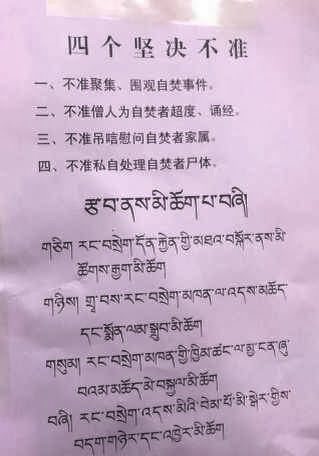 四个坚决不准
一、不准聚集、围观自焚事件。
二、不准僧人为自焚者超度、诵经。
三、不准吊唁慰问自焚者家属。
四、不准私自处理自焚者尸体。
རྩ་བ་ནས་མི་ཆོག་པ་བཞི།
གཅིག རང་བསྲེག་དོན་རྐྱེན་གྱི་མཐའ་བསྐོར་ནས་མི་
ཚོགས་རྒྱག་མི་ཆོག
གཉིས། གྲྭ་བས་རང་བསྲེག་མཁན་ལ་འདས་མཆོད་
དང་སྨོན་ལམ་སྒྲུབ་མི་ཆོག
གསུམ། རང་བསྲེག་མཁན་གྱི་ཁྱིམ་ཚང་ལ་མྱ་ངན་ཞུ་
བའམ་མཆོད་མེ་བསྐྱལ་མི་ཆོག
བཞི། རང་བསྲེག་འདས་མིའི་བེམ་པོ་མི་སྒེར་གྱིས་
བདག་གཉེར་དང་འཁྱེར་མི་ཆོག